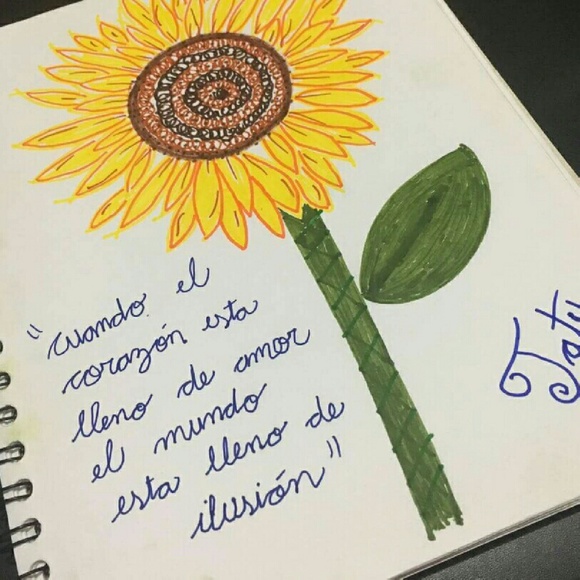 "cuando el
corazón esta
lleno de amor
el mundo
esta lleno de
ilusión"